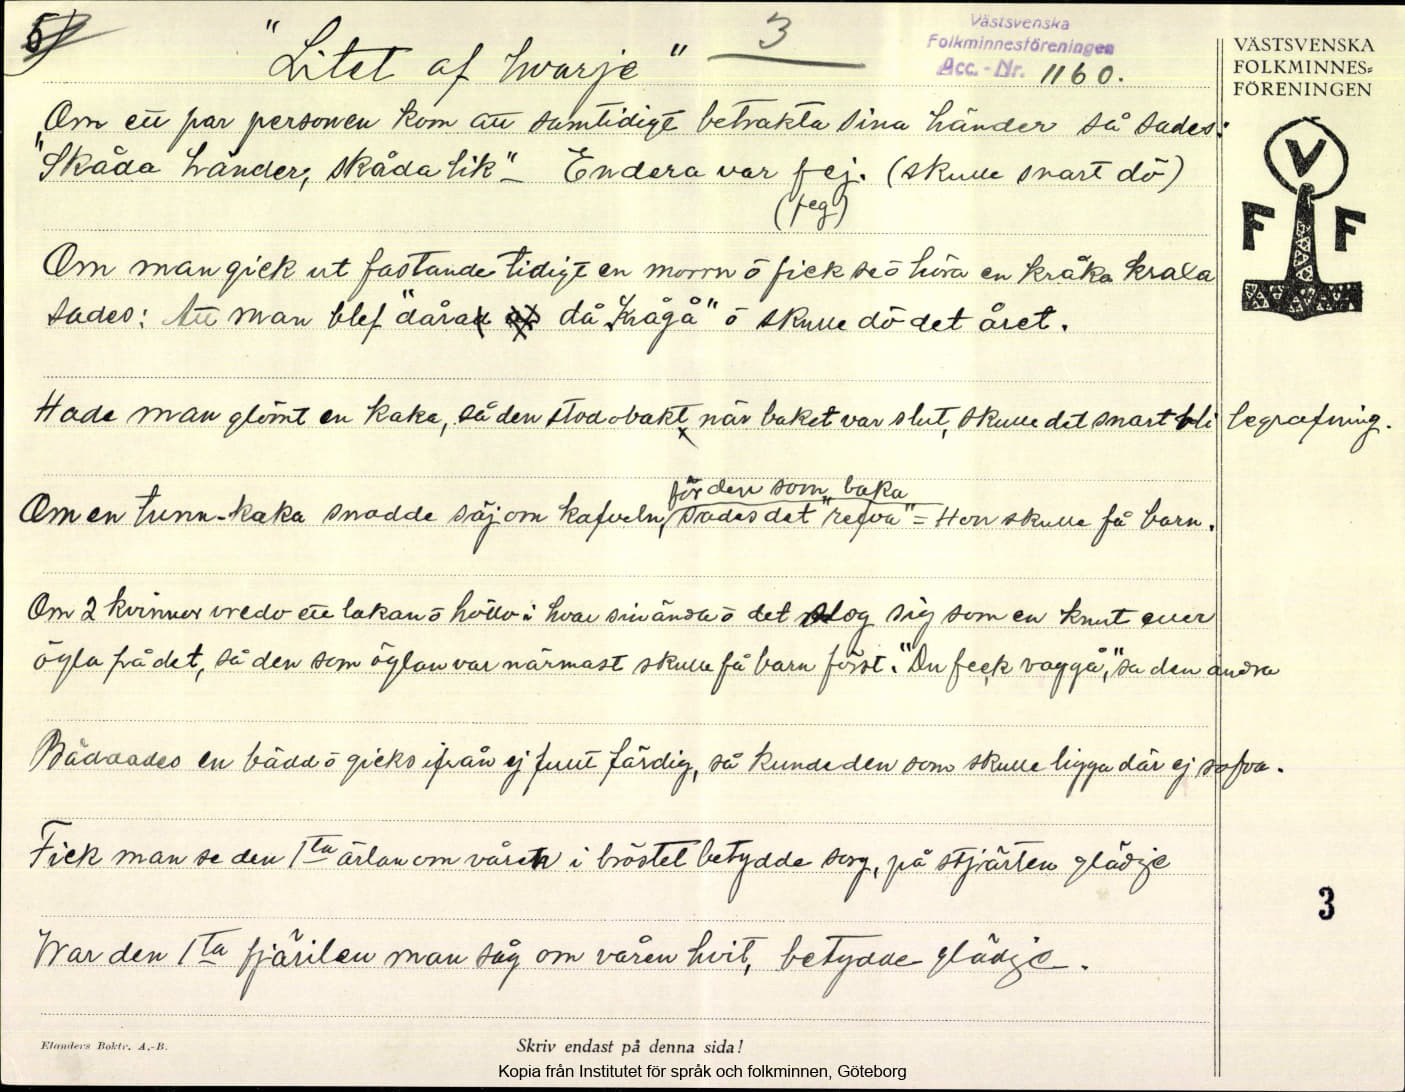 5)
"Litet af hvarje"
3
Västsvenska
Folkminnesföreningen
Acc.-Nr. 1160.
VÄSTSVENSKA
FOLKMINNES=
FÖRENINGEN
V
F F
Om ett par personen kom att samtidigt betrakta sina händer så sades:
"Skåda händer, skåda lik" Endera var fej. (skulle snart dö)
(feg)
Om man gick ut fastande tidigt en morrn ö fick se ö höra en kråka kraxa
sades: Att man blef "dårad då "Krågå" ö skulle dö det året.
Hade man glömt en kaka, så den stod obakt när baket var slut, skulle det snart bli begrafning.
för den som baka
Om en tunn-kaka snodde säj om kafveln, sades det "refva" = Hon skulle få barn.
Om 2 kvinnor vredo ett lakan ö höllo i hvar sin ända ö det slog sig som en knut eller
ögla på det, så den som öglan var närmast skulle få barn först. "Du feck vaggå," sa den andra
Bäddades en bädd ö gicks ifrån ej fullt färdig, så kunde den som skulle ligga där ej sofva.
Fick man se den 1sta ärlan om våren i bröstet betydde sorg, på stjärten glädje
War den 1sta fjärilen man såg om våren hvit, betydde glädje.
3
Elanders Boktr. A.-B.
Skriv endast på denna sida!
Kopia från Institutet för språk och folkminnen, Göteborg